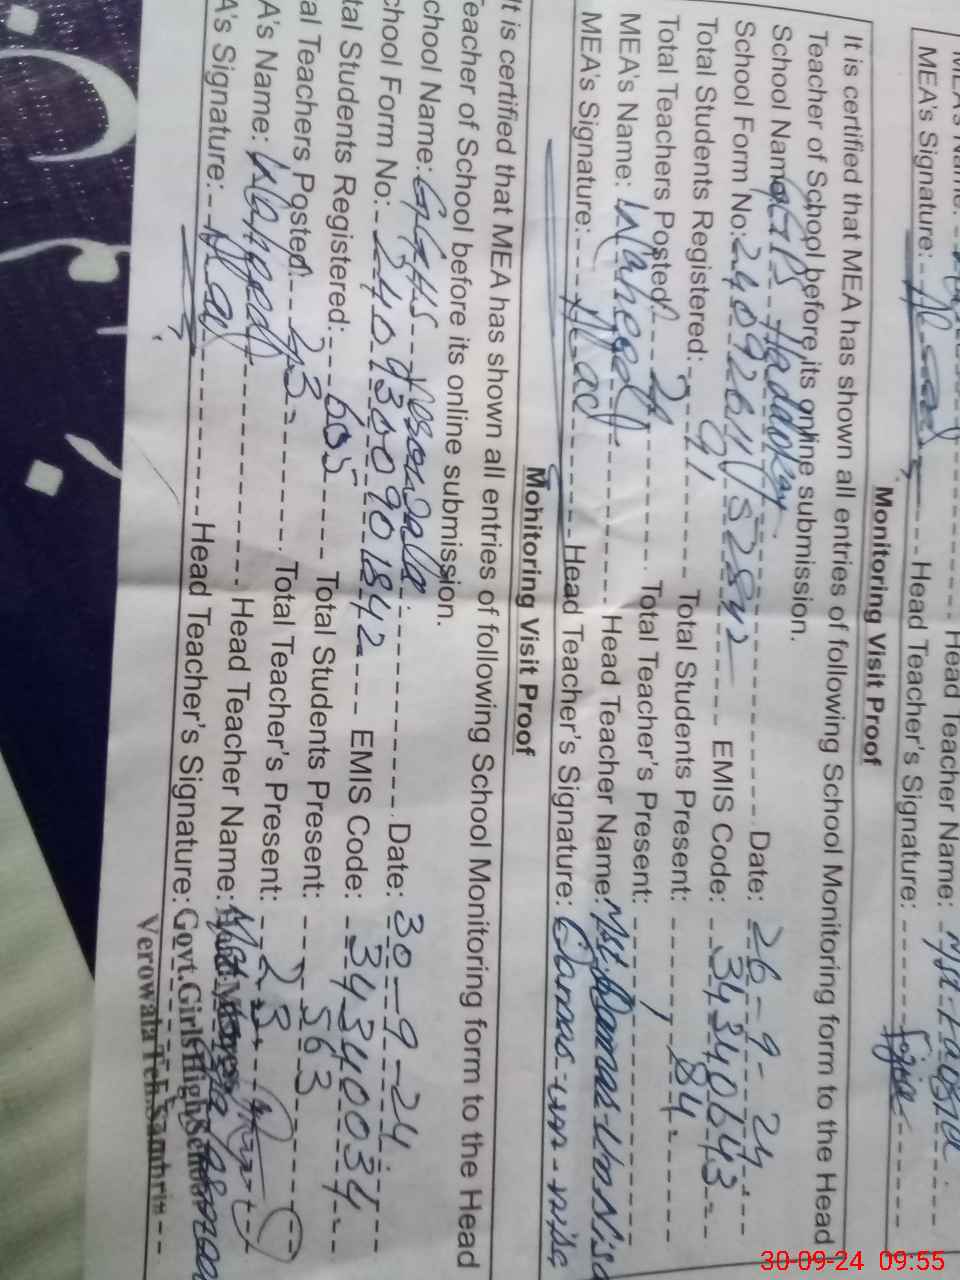 MEA's Name:
Head Teacher Name: Mst. Fauzia
MEA's Signature:
Head Teacher's Signature: Fojia
Monitoring Visit Proof
It is certified that MEA has shown all entries of following School Monitoring form to the Head
Teacher of School before its online submission.
School Name: GGPS Haddokay Date: 26-9-24
School Form No: EMIS Code: 34340643
Total Students Registered: 91 Total Students Present: 84
Total Teachers Posted: Total Teacher's Present:
MEA's Name: Waheed Head Teacher Name: Mst.
MEA's Signature: Head Teacher's Signature:
Monitoring Visit Proof
It is certified that MEA has shown all entries of following School Monitoring form to the Head
Teacher of School before its online submission.
School Name: GGHS Date: 30-9-24
School Form No: 240930090 1842 EMIS Code: 34340034
Total Students Registered: 605 Total Students Present: 563
Total Teachers Posted: 23 Total Teacher's Present: 23
MEA's Name: Waheed Head Teacher Name:
MEA's Signature: Head Teacher's Signature: Govt.Girls High School
Verowala Teh.Sambrial
30-09-24 09:55